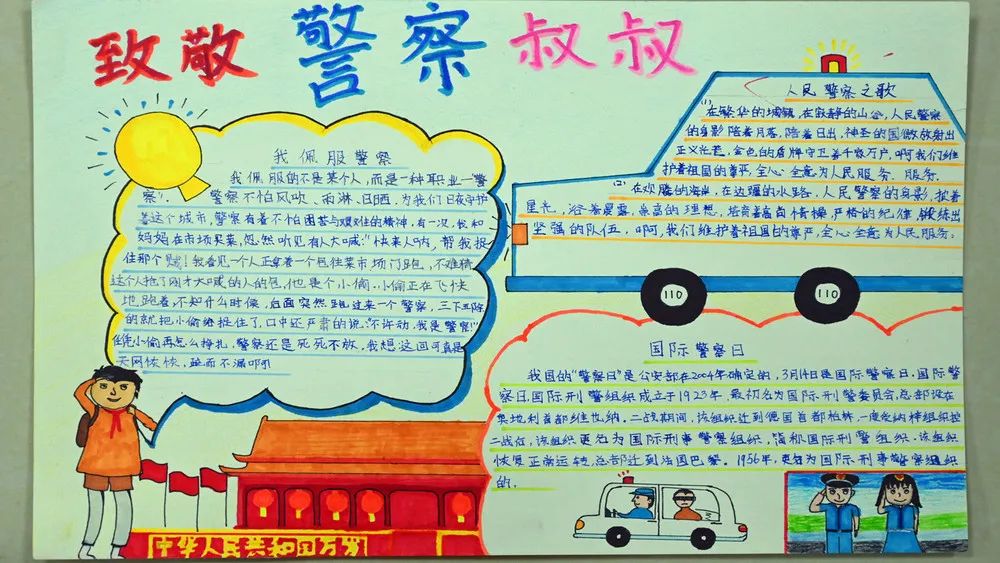 致敬警察叔叔
我佩服警察
我佩服的不是某个人,而是一种职业—"警
察"。警察不怕风吹、雨淋、日晒,为我们日夜守护
着这个城市,警察有着不怕困苦与艰难的精神,有一次,我和
妈妈在市场买菜,忽然听见有人大喊:"快来人呐,帮我捉
住那个贼!我看见一个人正拿着一个包往菜市场门跑,不难猜
这个人抢了刚才大喊的人的包,他是个小偷。小偷正在飞快
地跑着,不知什么时候,后面突然跑过来一个警察,三下五除
的就把小偷给捉住了,口中还严肃的说:"不许动,我是警察!"
任凭小偷再怎么挣扎,警察还是死死不放,我想这回可真是
天网恢恢,疏而不漏啊!
人民警察之歌
(1)
在繁华的城镇,在寂静的山谷,人民警察
的身影陪着月落,陪着日出,神圣的国徽放射出
正义光芒,金色的盾牌守卫着千家万户,啊我们维
护着祖国的尊严,全心全意为人民服务、服务。
(2)
在欢腾的海岸,在边疆的水路,人民警察的身影,披着
星光,浴着晨露,崇高的理想,培育着高尚情操,严格的纪律,锻练出
坚强的队伍,啊,我们维护着祖国的尊严,全心全意为人民服务:
110
110
国际警察日
我国的"警察日"是公安部在2004年确定的,3月14日是国际警察日,国际警
察日,国际刑警组织成立于1923年,最初名为国际刑警委员会,总部设在
奥地利首都维也纳。二战期间,该组织迁到德国首都柏林,一度受纳粹组织控
二战后,该组织更名为国际刑事警察组织,简称国际刑警组织。该组织
恢复正常运转,总部迁到法国巴黎。1956年,更名为国际刑事警察组织
的。
中华人民共和国万岁